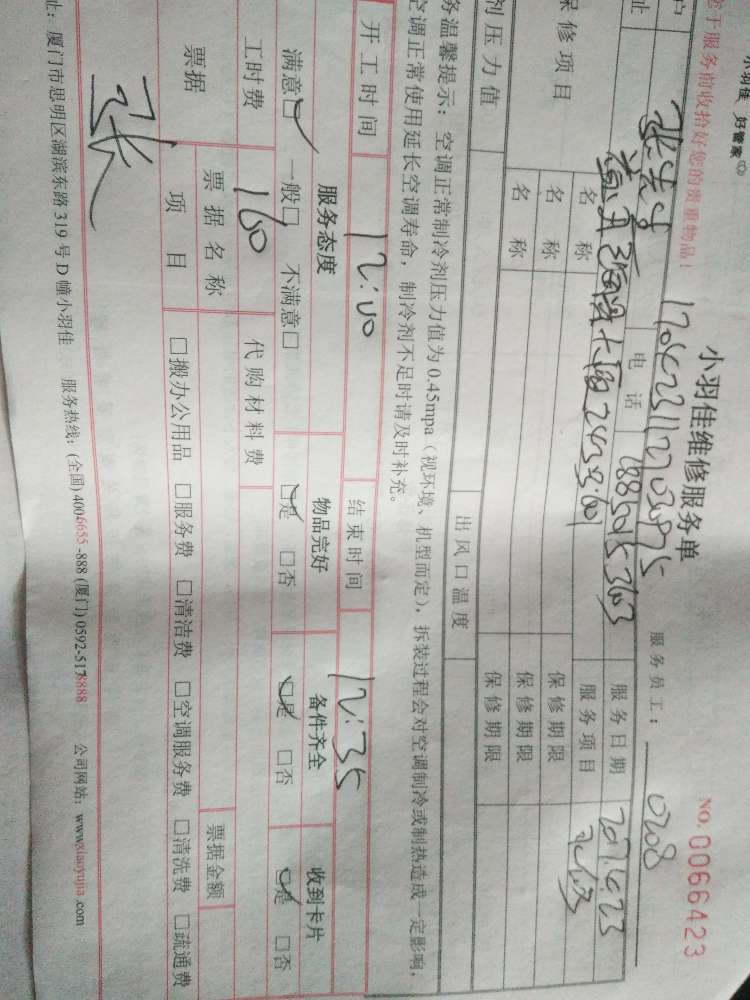 小羽佳 好管家
于服务前收拾好您的贵重物品！
小羽佳维修服务单
NO.0066423
服务员工： 0208
户
电话 18850153603
服务日期 2017.6.23
址
服务项目
保修项目
名称 保修期限
名称 保修期限
名称 保修期限
剂压力值 出风口温度
务温馨提示：空调正常制冷剂压力值为 0.45mpa（视环境、机型而定），拆装过程会对空调制冷或制热造成一定影响，
空调正常使用延长空调寿命，制冷剂不足时请及时补充。
开工时间 12:00 结束时间 12:35
服务态度 物品完好 备件齐全 收到卡片
满意□ 一般□ 不满意□ □是 □否 □是 □否 □是 □否
工时费 160 代购材料费
票据 票据名称 票据金额
项目 □搬办公用品 □服务费 □清洁费 □空调服务费 □清洗费 □疏通费
张
址：厦门市思明区湖滨东路 319 号 D 幢小羽佳 服务热线：(全国) 4006655-888 (厦门) 0592-5178888 公司网站：www.xiaoyujia.com